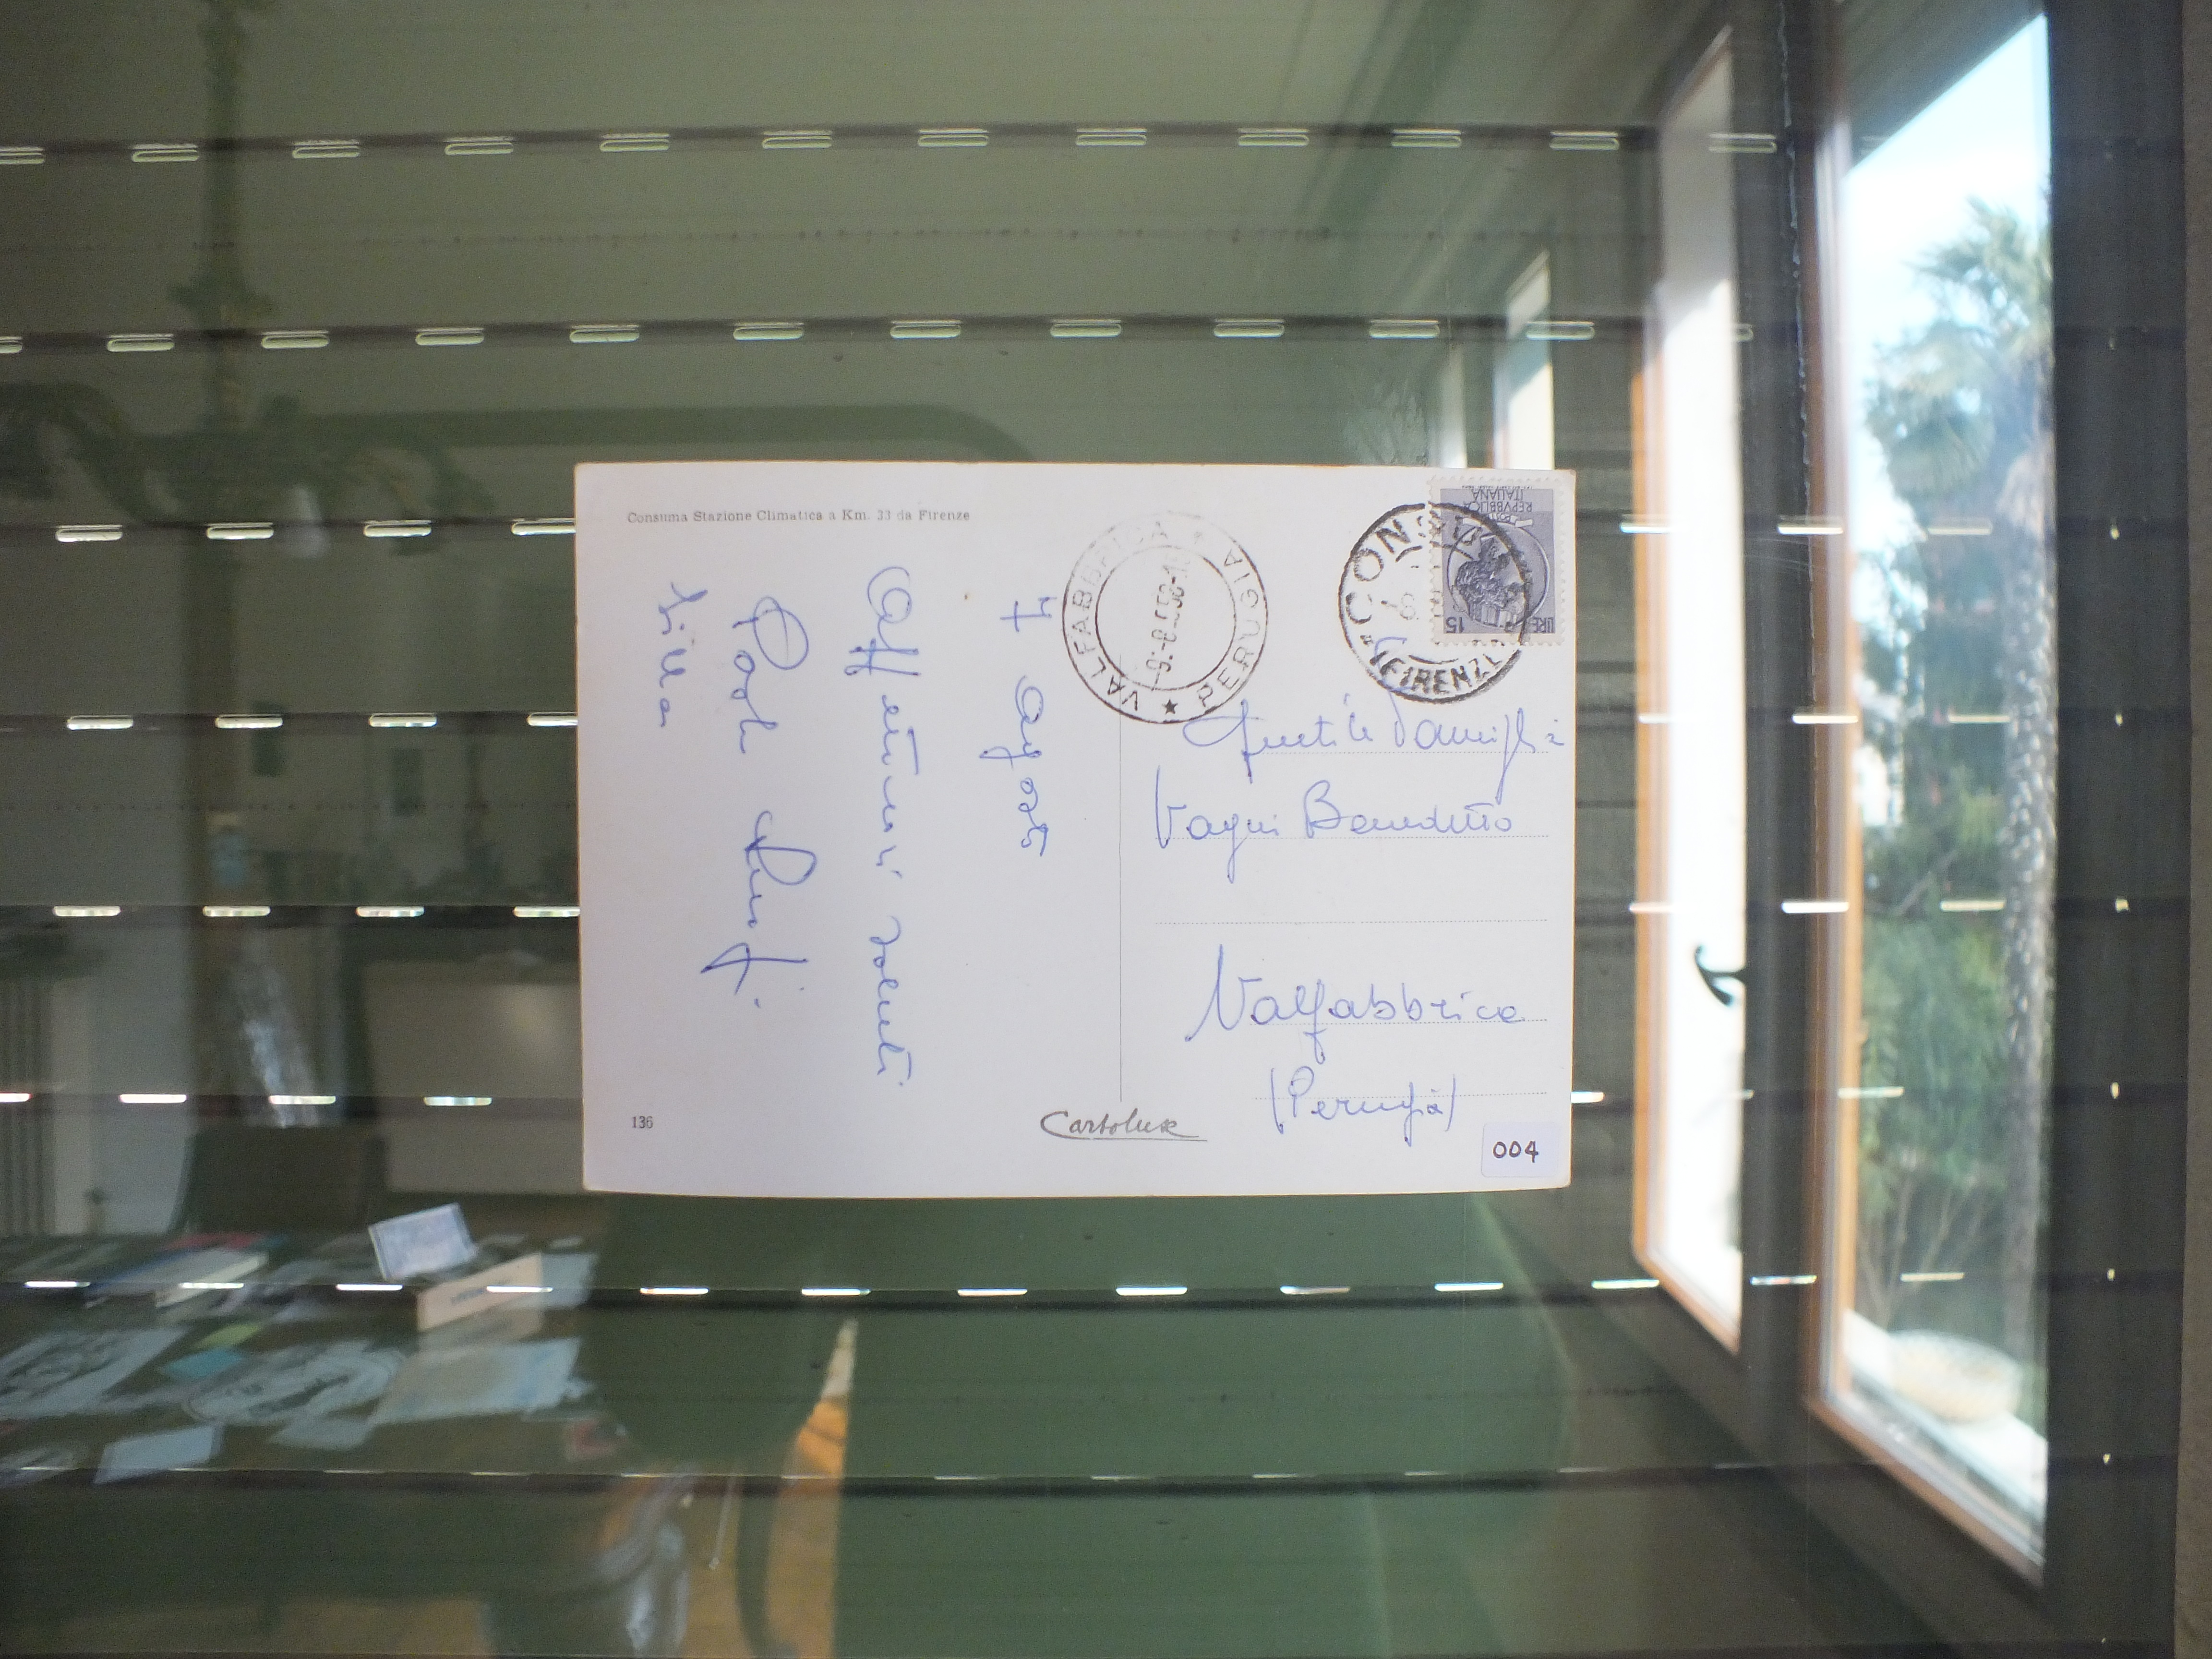 Consuma Stazione Climatica a Km. 33 da Firenze
7 agosto
Affettuosi saluti
Lilla
VALFABBRICA
PERUGIA
CONSUMA
(FIRENZE)
REPVBBLICA
ITALIANA
LIRE 15
Gentile Famiglia
Vagni Benedetto
Valfabbrica
(Perugia)
136
Cartolux
004